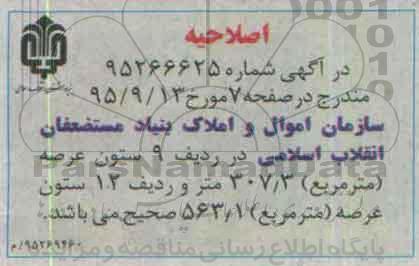 اصلاحیه
در آگهی شماره ۹۵۲۶۶۶۲۵
مندرج در صفحه ۷ مورخ ۹۵/۹/۱۳
سازمان اموال و املاک بنیاد مستضعفان
انقلاب اسلامی در ردیف ۹ ستون عرصه
(مترمربع) ۳۰۷/۳ متر و ردیف ۱۲ ستون
عرصه (مترمربع) ۵۶۳/۱ صحیح می باشد.
۹۵۲۶۹۴۶۰/م
ParsNamadData
پایگاه اطلاع رسانی مناقصه و مزایده